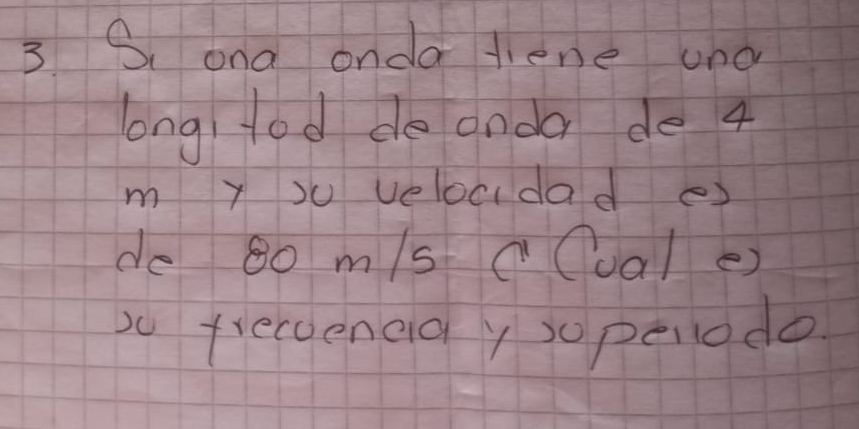 3. Si una onda tiene una
longitud de onda de 4
m y su velocidad es
de 80 m/s ¿Cual es
su frecuencia y su periodo.